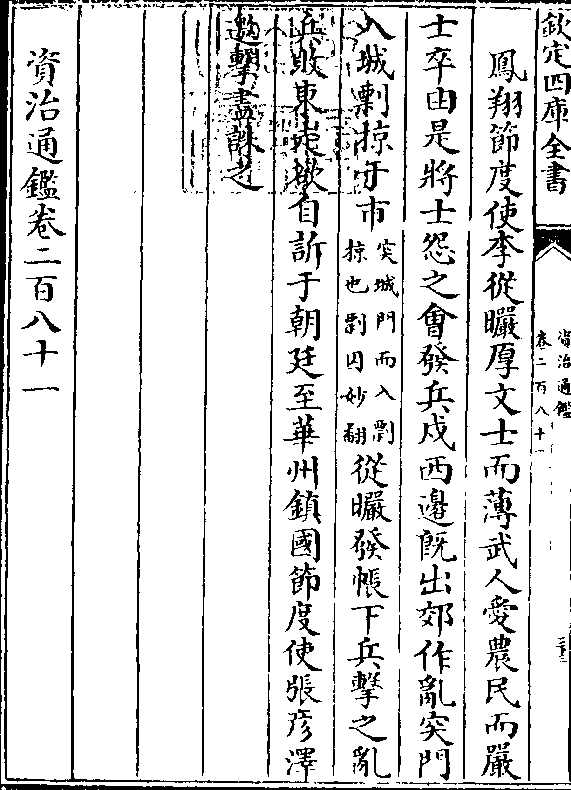 欽定四庫全書
資治通鑑
卷二百八十一
鳳翔節度使李從曮厚文士而薄武人愛農民而嚴
士卒由是將士怨之會發兵戍西邊旣出郊作亂突門
入城剽掠于市突城門而入剽掠也剽匹妙翻從曮發帳下兵擊之亂
兵敗東走欲自訴于朝廷至華州鎮國節度使張彥澤
邀擊盡誅之
資治通鑑卷二百八十一